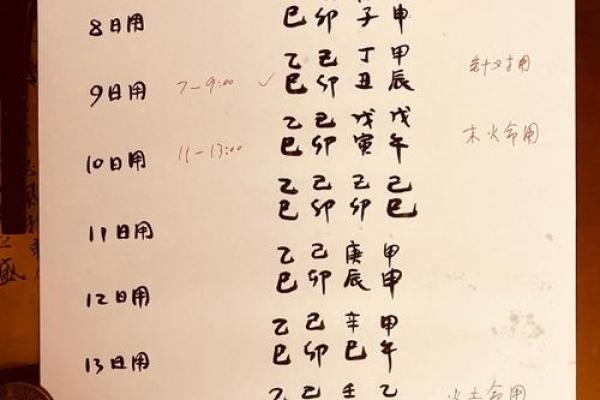 巳 卯 子 申
8日用
乙 己 丁 甲
巳 卯 丑 辰
9日用 7-9:00 ✓
乙 己 戊 戊
巳 卯 寅 午
木火命用
10日用 11-13:00
乙 己 己 己
巳 卯 卯 巳
11日用
乙 己 庚 甲
巳 卯 辰 申
12日用
乙 己 辛 甲
巳 卯 巳 午
13日用
乙 己 壬 乙
火土命用